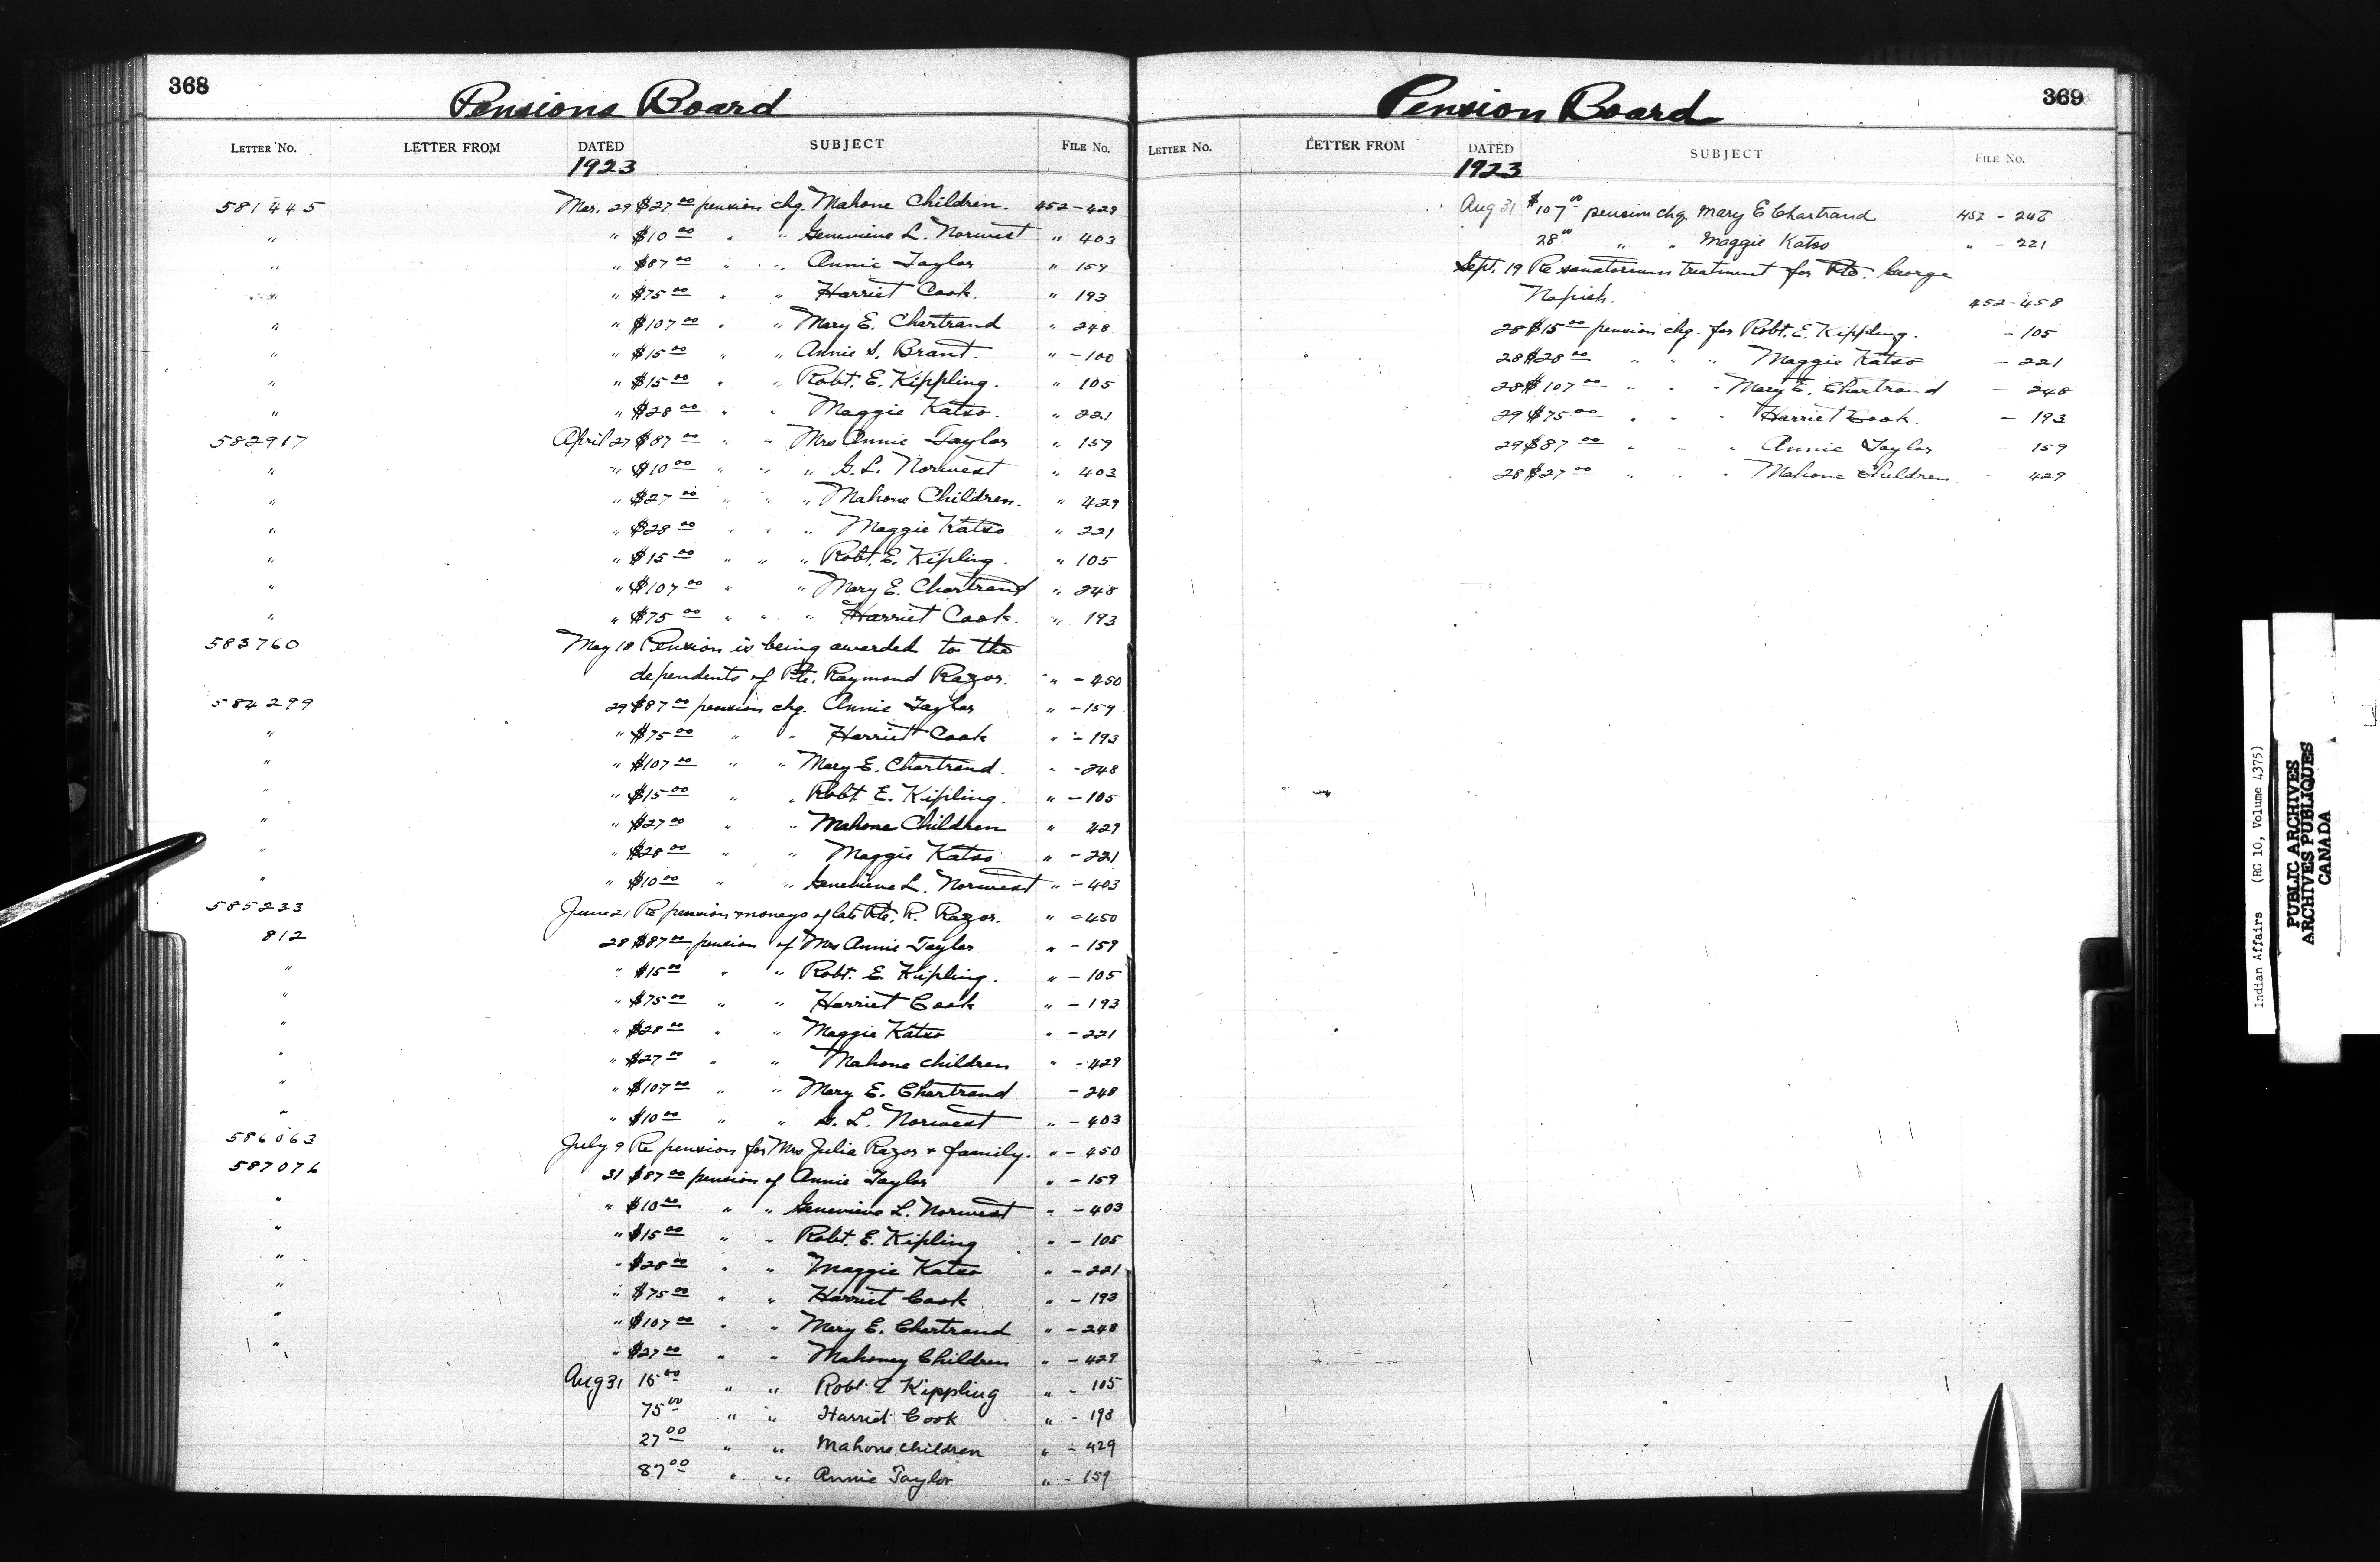 368
Pensions Board
LETTER NO. LETTER FROM DATED SUBJECT FILE NO.
1923
581445 Mar. 29 $27 00 pension chq. Mahone Children. 452-429
" " $10 00 " " Genevieve L. Norwest " 403
" " $87 00 " " Annie Taylor " 159
" " $75 00 " " Harriet Cook. " 193
" " $107 00 " " Mary E. Chartrand " 248
" " $15 00 " " Annie S. Brant. " - 100
" " $15 00 " " Robt. E. Kippling. " 105
" " $28 00 " " Maggie Katso. " 221
582917 April 27 $87 00 " " Mrs Annie Taylor " 159
" " $10 00 " " " G. L. Norwest " 403
" " $27 00 " " " Mahone Children. " 429
" " $28 00 " " " Maggie Katso " 221
" " $15 00 " " " Robt. E. Kipling. " 105
" " $107 00 " " Mary E. Chartrand " 248
" " $75 00 " " " Harriet Cook. " 193
583760 May 18 Pension is being awarded to the
dependents of Pte. Raymond Razor. " - 450
584299 29 $87 00 pension chq. Annie Taylor " - 159
" " $75 00 " " Harriet Cook " - 193
" " $107 00 " " Mary E. Chartrand. " - 248
" " $15 00 " " Robt E. Kipling. " - 105
" " $27 00 " " Mahone Children " 429
" " $28 00 " " Maggie Katso " - 221
" " $10 00 " " Genevieve L. Norwest " - 403
585233 June 21 Re pension moneys of late Pte. R. Razor. " - 450
812 28 $87 00 pension of Mrs Annie Taylor " - 159
" " $15 00 " " Robt. E Kipling. " - 105
" " $75 00 " " Harriet Cook " - 193
" " $28 00 " " Maggie Katso " - 221
" " $27 00 " " Mahone children " - 429
" " $107 00 " " Mary E. Chartrand - 248
" " $10 00 " " G. L. Norwest " - 403
586063 July 9 Re pension for Mrs Julia Razor + family. " - 450
587076 31 $87 00 pension of Annie Taylor " - 159
" " $10 00 " " Genevieve L. Norwest " - 403
" " $15 00 " " Robt. E. Kipling " - 105
" " $28 00 " " Maggie Katso " - 221
" " $75 00 " " Harriet Cook " - 193
" " $107 00 " " Mary E. Chartrand " - 248
" " $27 00 " " Mahoney Children " - 429
Aug 31 15 00 " " Robt. E Kippling " - 105
75 00 " " Harriet Cook " - 193
27 00 " " Mahone children " - 429
87 00 " " Annie Taylor " - 159
369
Pension Board
LETTER NO. LETTER FROM DATED SUBJECT FILE NO.
1923
Aug 31 $107 00 pension chq. Mary E Chartrand 452 - 248
28 00 " " Maggie Katso " - 221
Sept. 19 Re sanatorium treatment for Pte. George
Napish. 452-458
28 $15 00 pension chq. for Robt. E. Kippling. - 105
28 $28 00 " " " Maggie Katso - 221
28 $107 00 " " " Mary E. Chartrand - 248
29 $75 00 " " " Harriet Cook. - 193
29 $87 00 " " " Annie Taylor 159
28 $27 00 " " " Mahone Children. 429
Indian Affairs (RG 10, Volume 4375)
PUBLIC ARCHIVES
ARCHIVES PUBLIQUES
CANADA